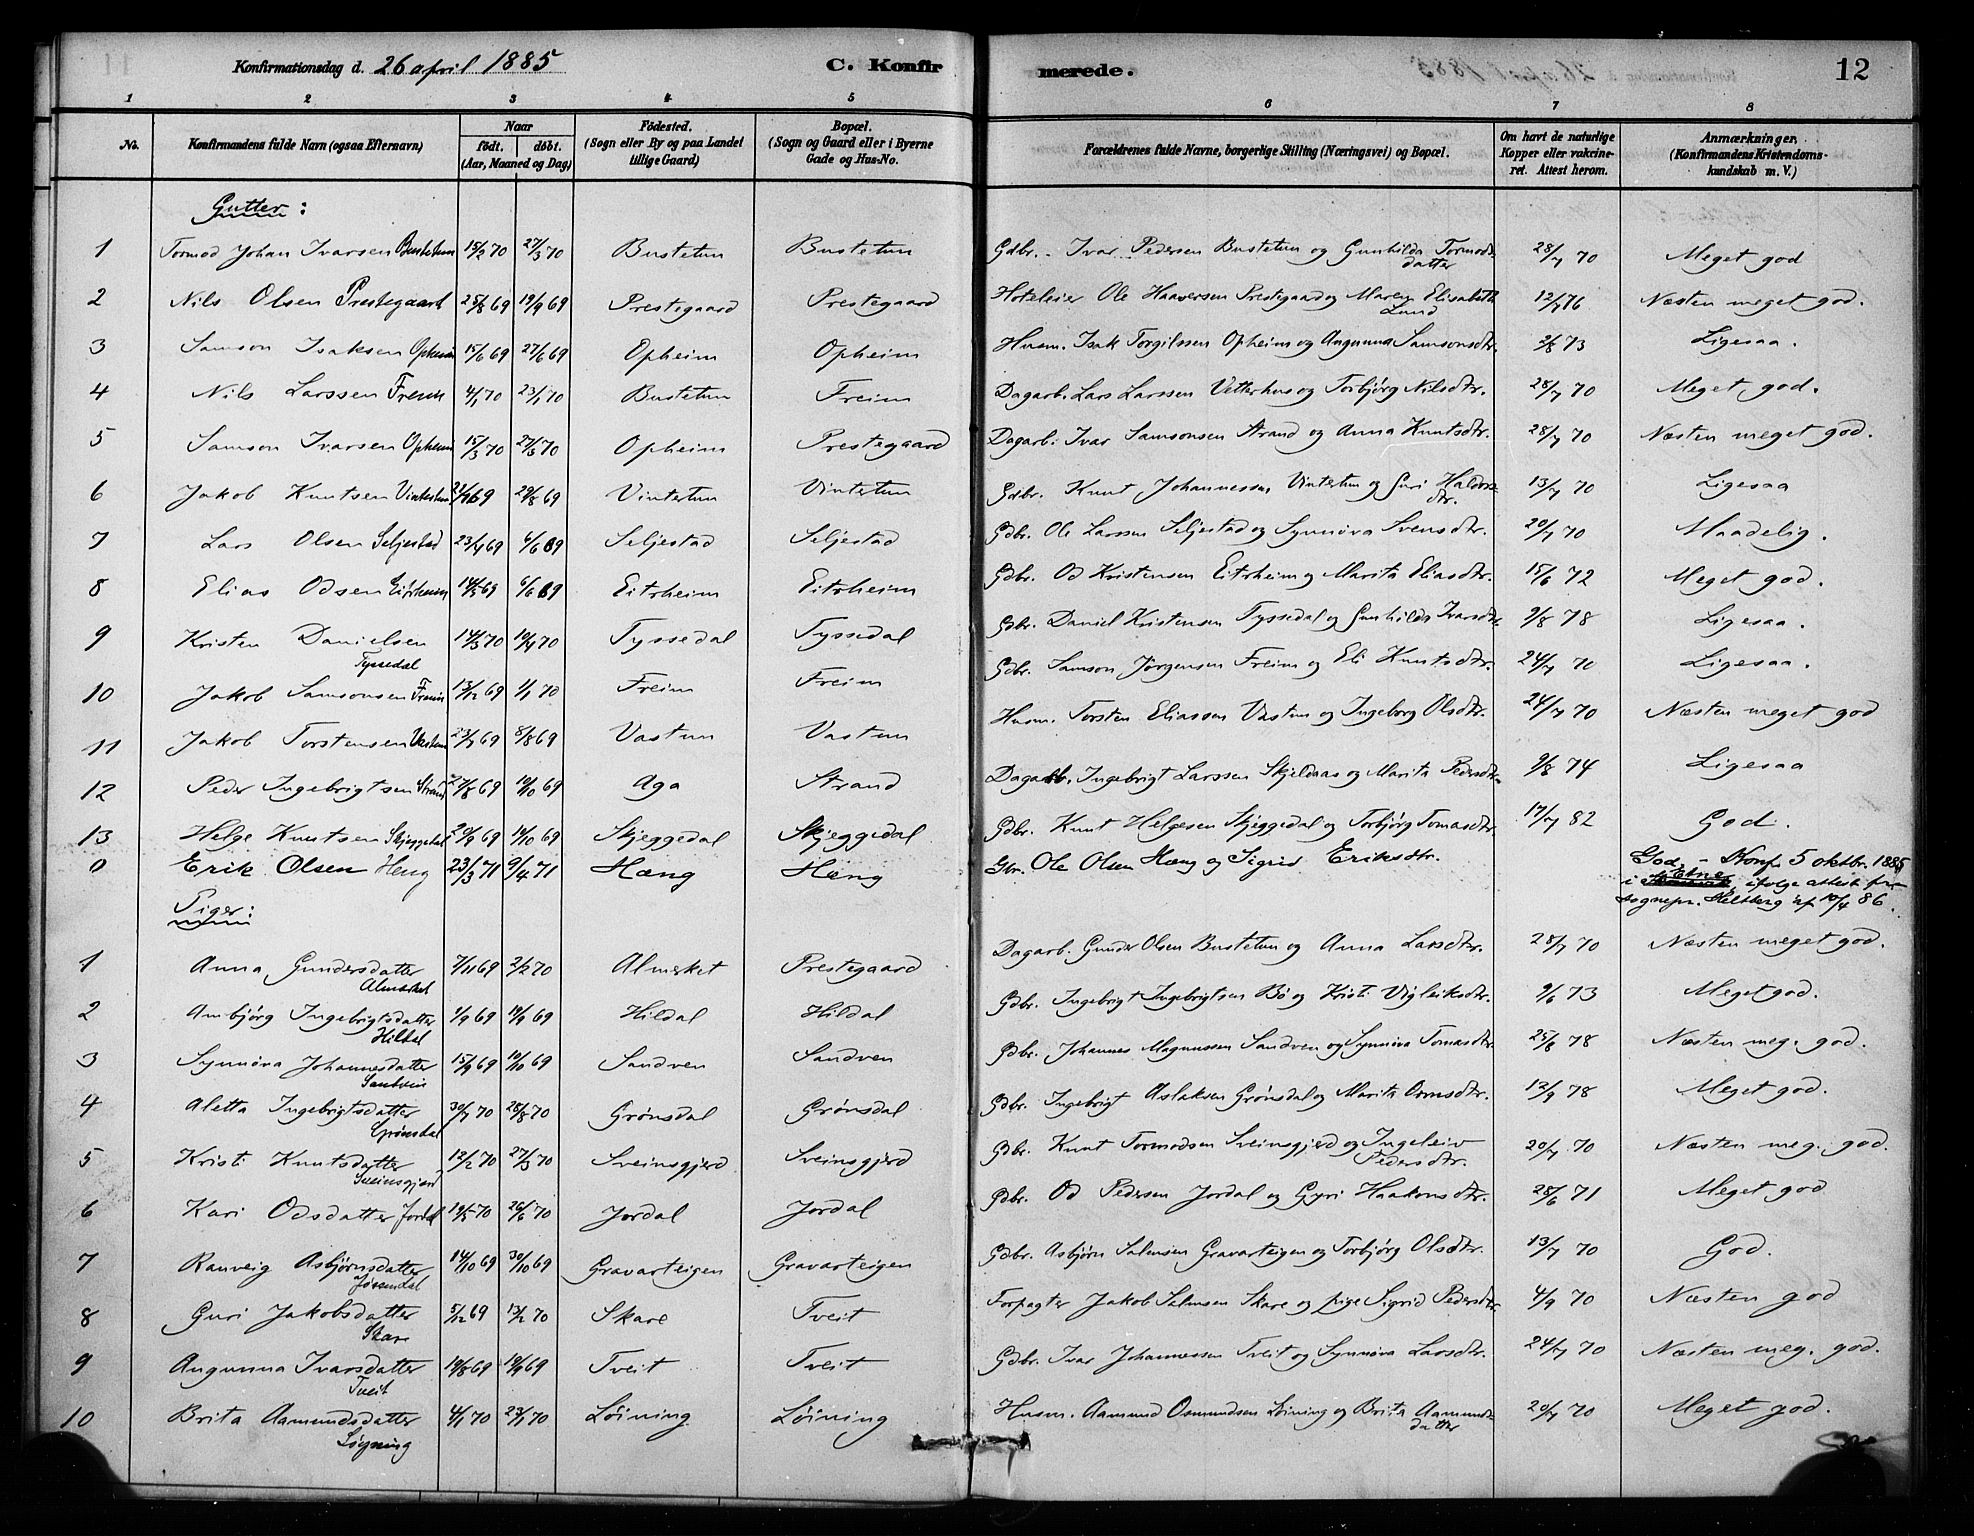 Konfirmationsdag d. 26 april 1885 C. Konfirmerede. 12
1 2 3 4 5 6 7 8
No. Konfirmandens fulde Navn (ogsaa Efternavn) Naar født. døbt. (Aar, Maaned og Dag) Fødested. (Sogn eller By og paa Landet tillige Gaard) Bopæl. (Sogn og Gaard eller i Byerne Gade og Hus-No. Forældrenes fulde Navne, borgerlige Stilling (Næringsvei) og Bopæl. Om havt de naturlige Kopper eller vakcineret. Attest herom. Anmærkninger. (Konfirmandens Kristendomskundskab m. V.)
Gutter:
1 Tormod Johan Ivarsen Bustetun 15/2 70 27/3 70 Bustetun Bustetun Gdbr. Ivar Pedersen Bustetun og Gunhilda Tormodsdatter 28/7 70 Meget god
2 Nils Olsen Prestegaard 25/8 69 19/9 69 Prestegaard Prestegaard Hoteleier Ole Haaversen Prestegaard og Maren Elisabeth Lund 12/7 76 Næsten meget god.
3 Samson Isaksen Opheim 15/6 69 27/6 69 Opheim Opheim Husm. Isak Torgilssen Opheim og Angunna Samsonsdtr. 9/8 73 Ligesaa.
4 Nils Larssen Freim 4/1 70 23/1 70 Bustetun Freim Dagarb. Lars Larssen Vetterhus og Torbjørg Nilsdtr. 28/7 70 Meget god.
5 Samson Ivarsen Opheim 15/3 70 27/3 70 Opheim Prestegaard Dagarb. Ivar Samsonsen Strand og Anna Knutsdtr. 28/7 70 Næsten meget god.
6 Jakob Knutsen Vintertun 29/8 69 Vintertun Vintertun Gdbr. Knut Johannessen Vintertun og Guri Haldorsdtr. 13/7 70 Ligesaa
7 Lars Olsen Seljestad 23/4 69 6/6 69 Seljestad Seljestad Gdbr. Ole Larssen Seljestad og Synnøva Svensdtr. 20/7 70 Maadelig.
8 Elias Odsen Eitrheim 14/5 69 6/6 69 Eitrheim Eitrheim Gdbr. Od Kristensen Eitrheim og Marita Eliasdtr. 15/6 72 Meget god.
9 Kristen Danielsen Tyssedal 14/3 70 10/4 70 Tyssedal Tyssedal Gdbr. Daniel Kristensen Tyssedal og Gunhilda Ivarsdtr. 9/8 78 Ligesaa.
10 Jakob Samsonsen Freim 13/12 69 1/1 70 Freim Freim Gdbr. Samson Jørgensen Freim og Eli Knutsdtr. 24/7 70 Ligesaa.
11 Jakob Torstensen Vastun 23/7 69 8/8 69 Vastun Vastun Husm. Torsten Eliassen Vastun og Ingeborg Olsdtr. 24/7 70 Næsten meget god
12 Peder Ingebrigtsen Strand 27/8 69 10/10 69 Aga Strand Dagarb. Ingebrigt Larssen Skjeldaas og Marita Pedersdtr. 9/8 74 Ligesaa
13 Helge Knutsen Skjeggedal 29/9 69 14/10 69 Skjeggedal Skjeggedal Gdbr. Knut Helgesen Skjeggedal og Torbjørg Tomasdtr. 17/7 82 God.
0 Erik Olsen Heng 23/3 71 9/4 71 Hæng Hæng Gbr. Ole Olsen Hæng og Sigrid Eriksdtr. God. – Konf. 5 oktbr. 1885
i Etne, ifølge attest fra
sognepr. Heltberg af 10/4 86.
Piger:
1 Anna Gundersdatter Almerket 7/11 69 2/2 70 Almerket Prestegaard Dagarb. Gunder Olsen Bustetun og Anna Larsdtr. 28/7 70 Næsten meget god.
2 Ambjørg Ingebrigtsdatter Hildal 1/9 69 19/9 69 Hildal Hildal Gdbr. Ingebrigt Ingebrigtsen Bø og Kristi Vigleiksdtr. 9/6 73 Meget god.
3 Synnøva Johannesdatter Sandven 15/9 69 10/10 69 Sandven Sandven Gdbr. Johannes Magnussen Sandven og Synnøva Tomasdtr. 25/8 78 Næsten meg. god.
4 Aletta Ingebrigtsdatter Grønsdal 30/7 70 28/8 70 Grønsdal Grønsdal Gdbr. Ingebrigt Aslaksen Grønsdal og Marita Ormsdtr. 12/9 78 Meget god.
5 Kristi Knutsdatter Sveinsgjerd 13/2 70 27/3 70 Sveinsgjerd Sveinsgjerd Gdbr. Knut Tormodsen Sveinsgjerd og Ingeleiv Pedersdtr. 20/7 70 Næsten meg. god.
6 Kari Odsdatter Jordal 19/5 70 26/6 70 Jordal Jordal Gdbr. Od Pedersen Jordal og Gyri Haakonsdtr. 28/6 71 Meget god
7 Ranveig Asbjørnsdatter Jøssendal 14/10 69 30/10 69 Gravarteigen Gravarteigen Gdbr. Asbjørn Salmsen Gravarteigen og Torbjørg Olsdtr. 13/7 70 God.
8 Guri Jakobsdatter Skare 5/12 69 13/2 70 Skare Tveit Forpagter Jakob Salmsen Skare og pige Sigrid Pedersdtr 4/9 70 Næsten god
9 Angunna Ivarsdatter Tveit 19/8 69 19/9 69 Tveit Tveit Gdbr. Ivar Johannessen Tveit og Synnøva Larsdtr. 24/7 70 Næsten meg. god.
10 Brita Aamundsdatter Løyning 4/1 70 23/1 70 Løining Løining Husm. Aamund Osmundsen Løining og Brita Aamundsdatter 20/7 70 Meget god.